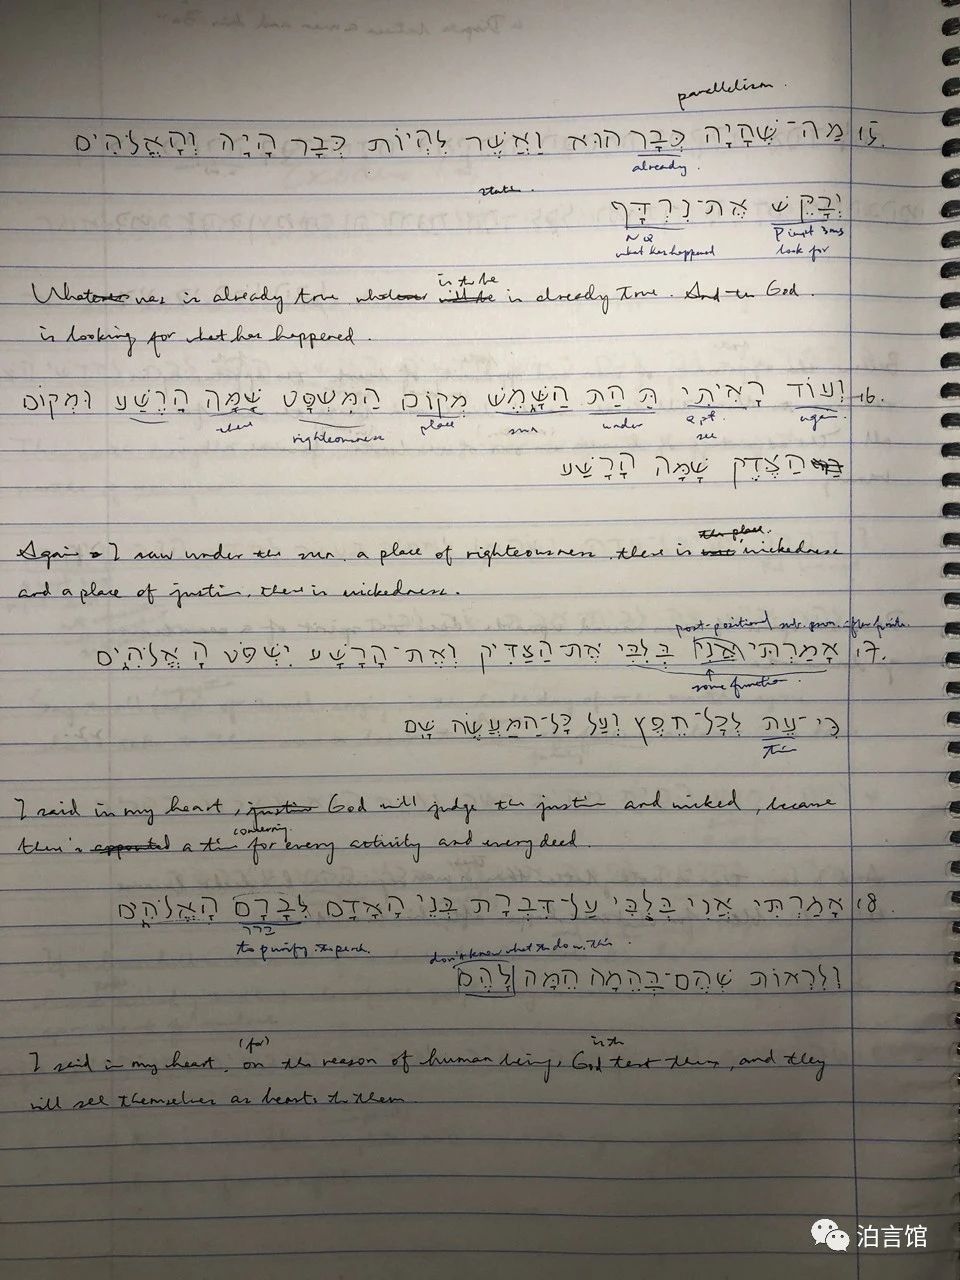 parallelism.
15. מַה־שֶּׁהָיָה כְּבָר הוּא וַאֲשֶׁר לִהְיוֹת כְּבָר הָיָה וְהָאֱלֹהִים
already
state.
יְבַקֵּשׁ אֶת־נִרְדָּף
N Q
what has happened
look for
Whatever was is already true whatever will be is to be is already true. And the God
is looking for what has happened.
16. וְעוֹד רָאִיתִי תַּחַת הַשָּׁמֶשׁ מְקוֹם הַמִּשְׁפָּט שָׁמָּה הָרֶשַׁע וּמְקוֹם
again
see
under
sun
place
righteousness
there
הַצֶּדֶק שָׁמָּה הָרָשַׁע
the place.
Again I saw under the sun. a place of righteousness. there is wickedness
and a place of justice, there is wickedness.
post-positional sub. pron. after finite.
17. אָמַרְתִּי אֲנִי בְּלִבִּי אֶת־הַצַּדִּיק וְאֶת־הָרָשָׁע יִשְׁפֹּט הָאֱלֹהִים
some function.
כִּי־עֵת לְכָל־חֵפֶץ וְעַל כָּל־הַמַּעֲשֶׂה שָׁם
time
I said in my heart, justice God will judge the justice and wicked, because
there's appointed a time concerning for every activity and every deed.
18. אָמַרְתִּי אֲנִי בְּלִבִּי עַל־דִּבְרַת בְּנֵי הָאָדָם לְבָרָם הָאֱלֹהִים
ברר
to purify.
don't know what to do w. this.
וְלִרְאוֹת שֶׁהֶם־בְּהֵמָה הֵמָּה לָהֶם
(for)
is to
I said in my heart, on the reason of human being, God test them, and they
will see themselves as beasts to them.
泊言馆